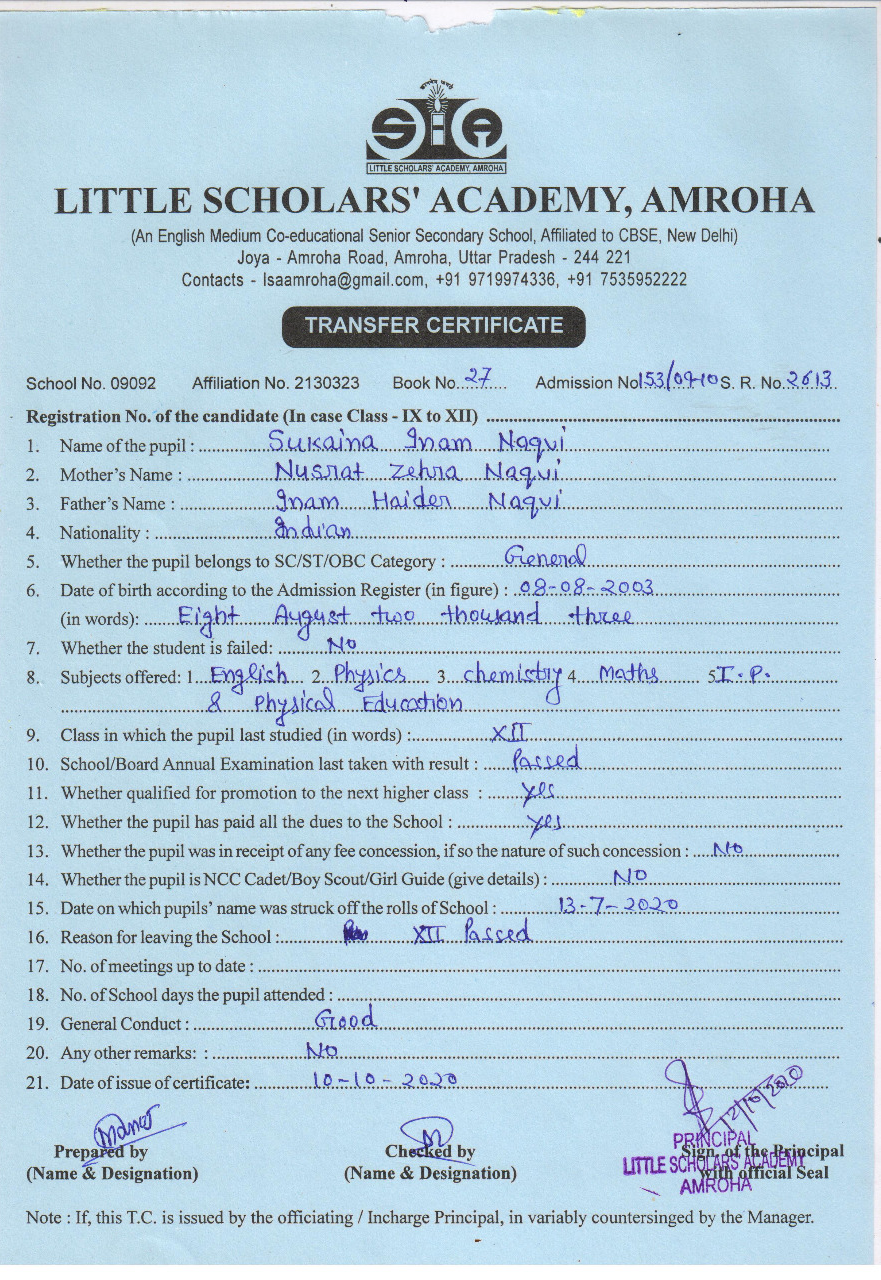 LITTLE SCHOLARS' ACADEMY, AMROHA
LITTLE SCHOLARS' ACADEMY, AMROHA
(An English Medium Co-educational Senior Secondary School, Affiliated to CBSE, New Delhi)
Joya - Amroha Road, Amroha, Uttar Pradesh - 244 221
Contacts - lsaamroha@gmail.com, +91 9719974336, +91 7535952222
TRANSFER CERTIFICATE
School No. 09092 Affiliation No. 2130323 Book No. 27 Admission No 153/09-10 S. R. No. 2613
Registration No. of the candidate (In case Class - IX to XII)
1. Name of the pupil : Sukaina Inam Naqvi
2. Mother's Name : Nusrat Zehra Naqvi
3. Father's Name : Inam Haider Naqvi
4. Nationality : Indian
5. Whether the pupil belongs to SC/ST/OBC Category : General
6. Date of birth according to the Admission Register (in figure) : 08-08-2003
(in words): Eight August two thousand three
7. Whether the student is failed: No
8. Subjects offered: 1. English 2. Physics 3. chemistry 4. Maths 5. I.P.
& Physical Education
9. Class in which the pupil last studied (in words) : XII
10. School/Board Annual Examination last taken with result : Passed
11. Whether qualified for promotion to the next higher class : yes
12. Whether the pupil has paid all the dues to the School : yes
13. Whether the pupil was in receipt of any fee concession, if so the nature of such concession : No
14. Whether the pupil is NCC Cadet/Boy Scout/Girl Guide (give details) : NO
15. Date on which pupils' name was struck off the rolls of School : 13-7-2020
16. Reason for leaving the School : XII Passed
17. No. of meetings up to date :
18. No. of School days the pupil attended :
19. General Conduct : Good
20. Any other remarks: : No
21. Date of issue of certificate: 10-10-2020
12/10/2020
Prepared by Checked by Sign. of the Principal
(Name & Designation) (Name & Designation) with official Seal
PRINCIPAL
LITTLE SCHOLARS ACADEMY
AMROHA
Note : If, this T.C. is issued by the officiating / Incharge Principal, in variably countersinged by the Manager.